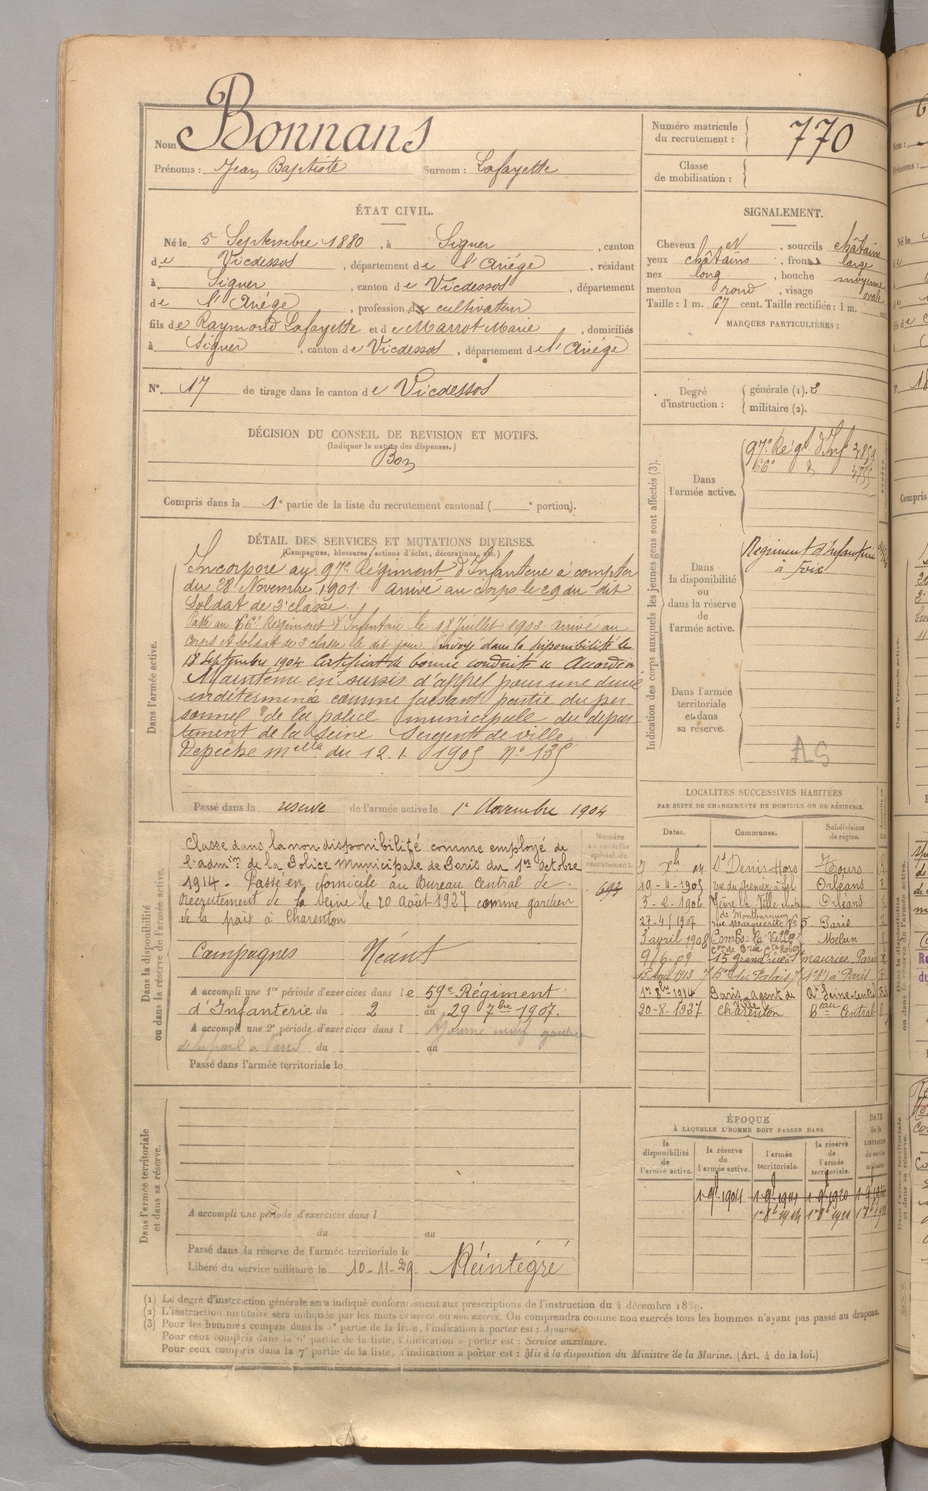 Nom Bonnans
Prénoms : Jean Baptiste Surnom : Lafayette
Numéro matricule du recrutement : 770
Classe de mobilisation :
ÉTAT CIVIL.
Né le 5 Septembre 1880, à Siguer, canton
de Vicdessos, département de l'Ariége, résidant
à Siguer, canton de Vicdessos, département
de l'Ariége, profession de cultivateur
fils de Raymond Lafayette et de Marrot Marie, domiciliés
à Siguer, canton de Vicdessos, département de l'Ariége
N° 17 de tirage dans le canton de Vicdessos
SIGNALEMENT.
Cheveux et, sourcils châtains
yeux châtains, front large
nez long, bouche moyenne
menton rond, visage ovale
Taille : 1 m. 67 cent. Taille rectifiée : 1 m.
MARQUES PARTICULIÈRES :
Degré d'instruction : générale (1).
militaire (2).
DÉCISION DU CONSEIL DE REVISION ET MOTIFS.
(Indiquer la nature des dispenses.)
Bon
Compris dans la 1e partie de la liste du recrutement cantonal ( e portion).
DÉTAIL DES SERVICES ET MUTATIONS DIVERSES.
(Campagnes, blessures, actions d'éclat, décorations, etc.)
Dans l'armée active.
Incorporé au 97e Régiment d'Infanterie à compter
du 28 Novembre 1901 Arrivé au corps le 29 du dit
Soldat de 2e classe.
Passé au 66e Régiment d'Infanterie le 18 Juillet 1902 arrivé au
corps et soldat de 2e classe le dit jour. Envoyé dans la disponibilité le
18 Septembre 1904 Certificat de bonne conduite Accordé
Maintenu en sursis d'appel pour une durée
indéterminée comme faisant partie du per-
sonnel de la police municipale du dépar-
tement de la Seine Sergent de ville
Dépêche melle du 12.1.1905 N° 135
Passé dans la réserve de l'armée active le 1er Novembre 1904
Indication des corps auxquels les jeunes gens sont affectés (3).
Dans l'armée active.
97e Régt d'Inf
66e
Dans la disponibilité ou dans la réserve de l'armée active.
Régiment d'infanterie
à Foix
Dans l'armée territoriale et dans sa réserve.
AS
Dans la disponibilité ou dans la réserve de l'armée active.
Numéro au contrôle spécial du recrutement.
Classé dans la non disponibilité comme employé de
l'admion de la Police Municipale de Paris du 1er Octobre
1914 - Passé en domicile au Bureau Central de
Recrutement de la Seine le 20 Août 1927 comme gardien
de la paix à Charenton
Campagnes Néant
A accompli une 1re période d'exercices dans le 59e Régiment
d'Infanterie du 2 au 29 7bre 1907.
A accompli une 2e période d'exercices dans l
du au
Passé dans l'armée territoriale le
LOCALITÉS SUCCESSIVES HABITÉES
PAR SUITE DE CHANGEMENTS DE DOMICILE OU DE RÉSIDENCE.
Dates. Communes. Subdivisions de région.
St Denis-Hors Tours
19-4-1905 Orléans
3-2-1906 Orléans
27-4-1907 Paris
3 avril 1908 Combs-la-Ville Melun
9/6-09 15 Grande rue St Maurice Paris
1913 Paris
1er 8bre 1914 Paris-Agent de Ville Seine-Central
20-8-1927 Charenton Beau Central
Dans l'armée territoriale et dans sa réserve.
A accompli une période d'exercices dans l
du au
Passé dans la réserve de l'armée territoriale le
Libéré du service militaire le 10-11-29 Réintégré
ÉPOQUE
À LAQUELLE L'HOMME DOIT PASSER DANS
la disponibilité de l'armée active. la réserve de l'armée active. l'armée territoriale. la réserve de l'armée territoriale. DATE de la LIBÉRATION du service
(1) Le degré d'instruction générale sera indiqué conformément aux prescriptions de l'instruction du 4 décembre 1889.
(2) L'instruction militaire sera indiquée par les mots exercé ou non exercé. On comprendra comme non exercés tous les hommes n'ayant pas passé au drapeau.
(3) Pour les hommes compris dans la 5e partie de la liste, l'indication à porter est : Ajourné.
Pour ceux compris dans la 6e partie de la liste, l'indication à porter est : Service auxiliaire.
Pour ceux compris dans la 7e partie de la liste, l'indication à porter est : Mis à la disposition du Ministre de la Marine. (Art. 4 de la loi.)